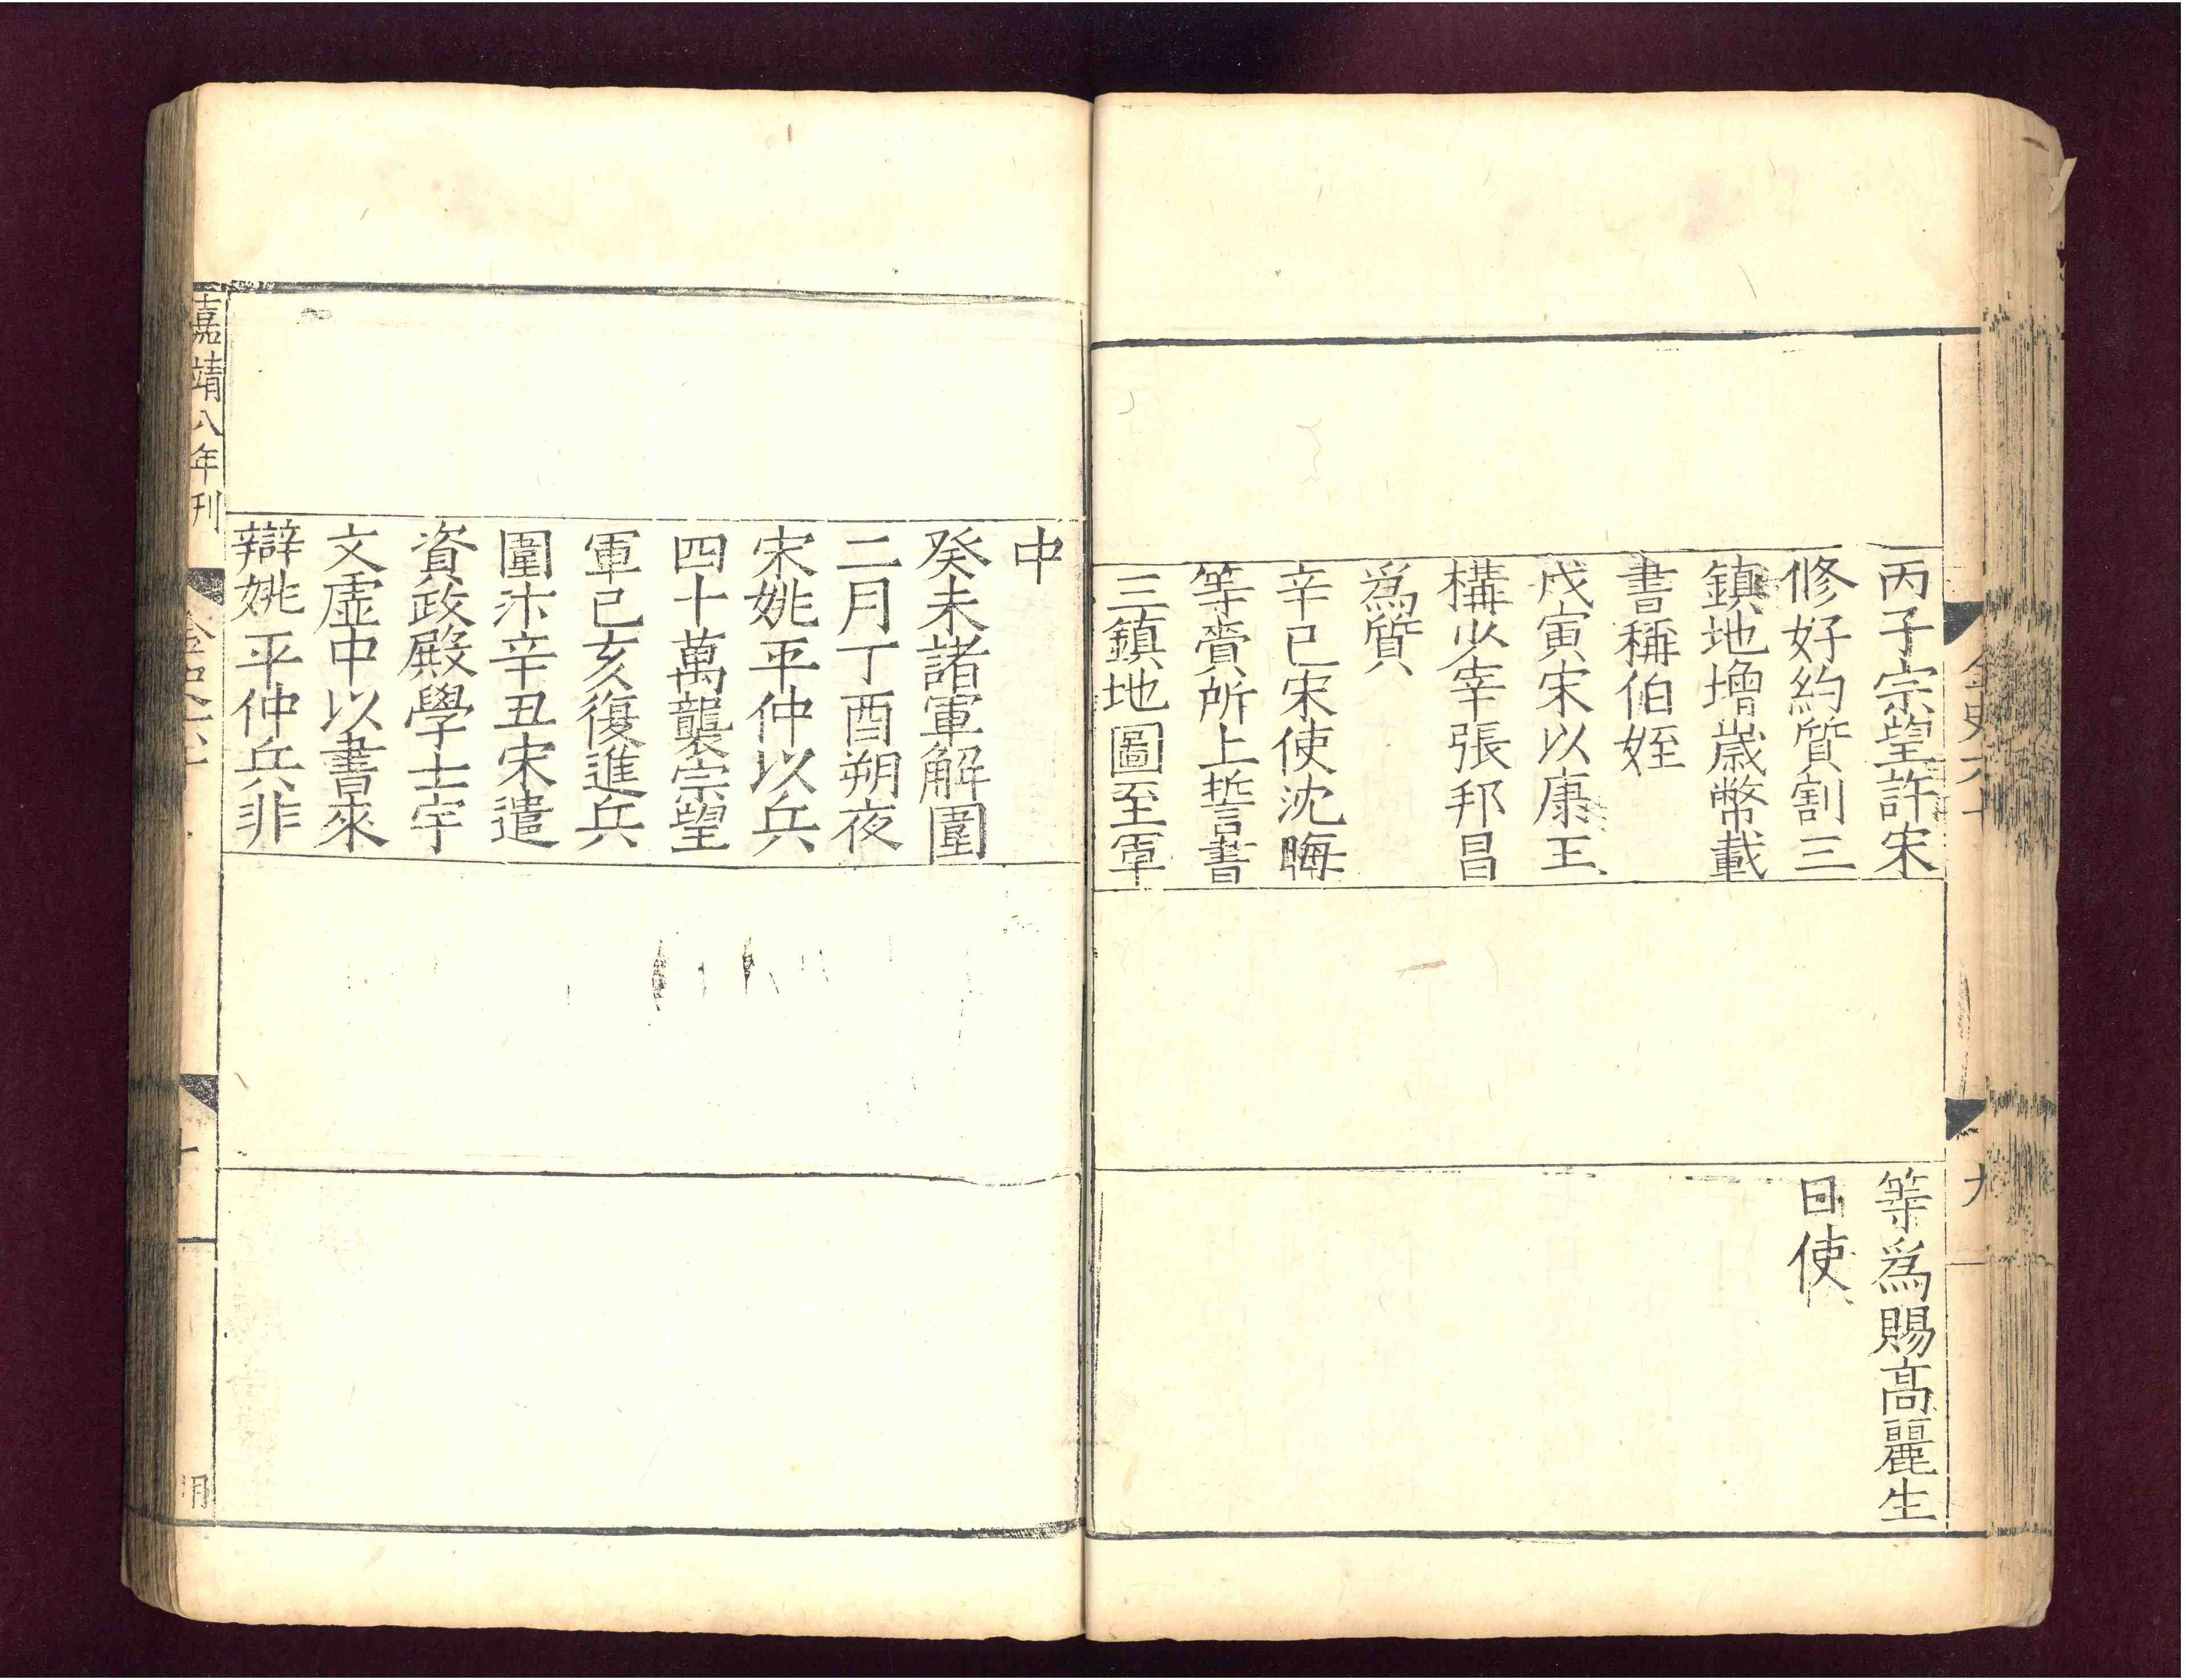 丙子宗望許宋
修好約質割三
鎮地增歲幣載
書稱伯姪
戊寅宋以康王
構少宰張邦昌
爲質
辛巳宋使沈晦
等賫所上誓書
三鎮地圖至軍
等爲賜高麗生
日使
金史六十
九
中
癸未諸軍解圍
二月丁酉朔夜
宋姚平仲以兵
四十萬襲宗望
軍己亥復進兵
圍汴辛丑宋遣
資政殿學士宇
文虛中以書來
辯姚平仲兵非
嘉靖八年刊